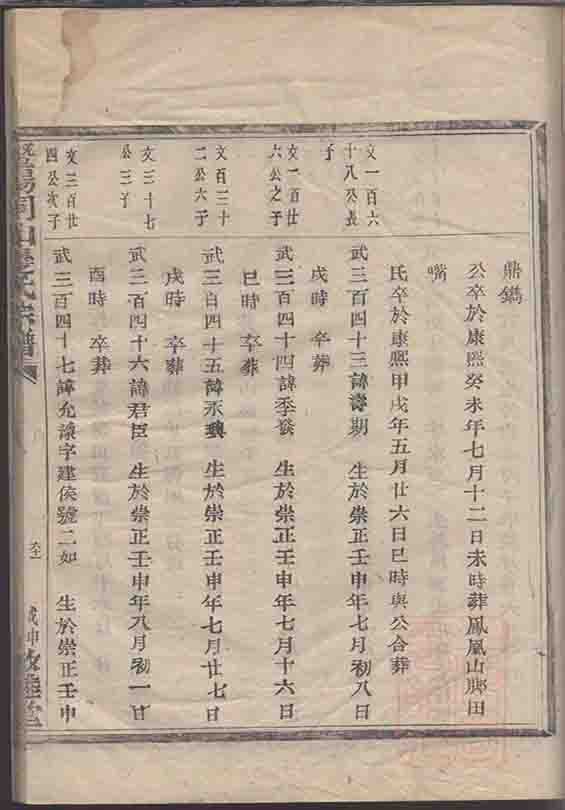 鼎鐫
公卒於康熙癸未年七月十二日未時葬鳳凰山脚田
嘴
氏卒於康熙甲戌年五月廿六日巳時與公合葬
文一百六
十八公長
子
武三百四十三諱壽期　生於崇正壬申年七月初八日
戌時　卒葬
文一百廿
六公之子
武三百四十四諱季發　生於崇正壬申年七月十六日
巳時　卒葬
文百三十
二公六子
武三百四十五諱永興　生於崇正壬申年七月廿七日
戌時　卒葬
文三十七
公三子
武三百四十六諱君臣　生於崇正壬申年八月初一日
酉時　卒葬
文三百廿
四公次子
武三百四十七諱允諫字建侯號二如　生於崇正壬申
陽同山 氏宗譜
戊申
敦睦堂